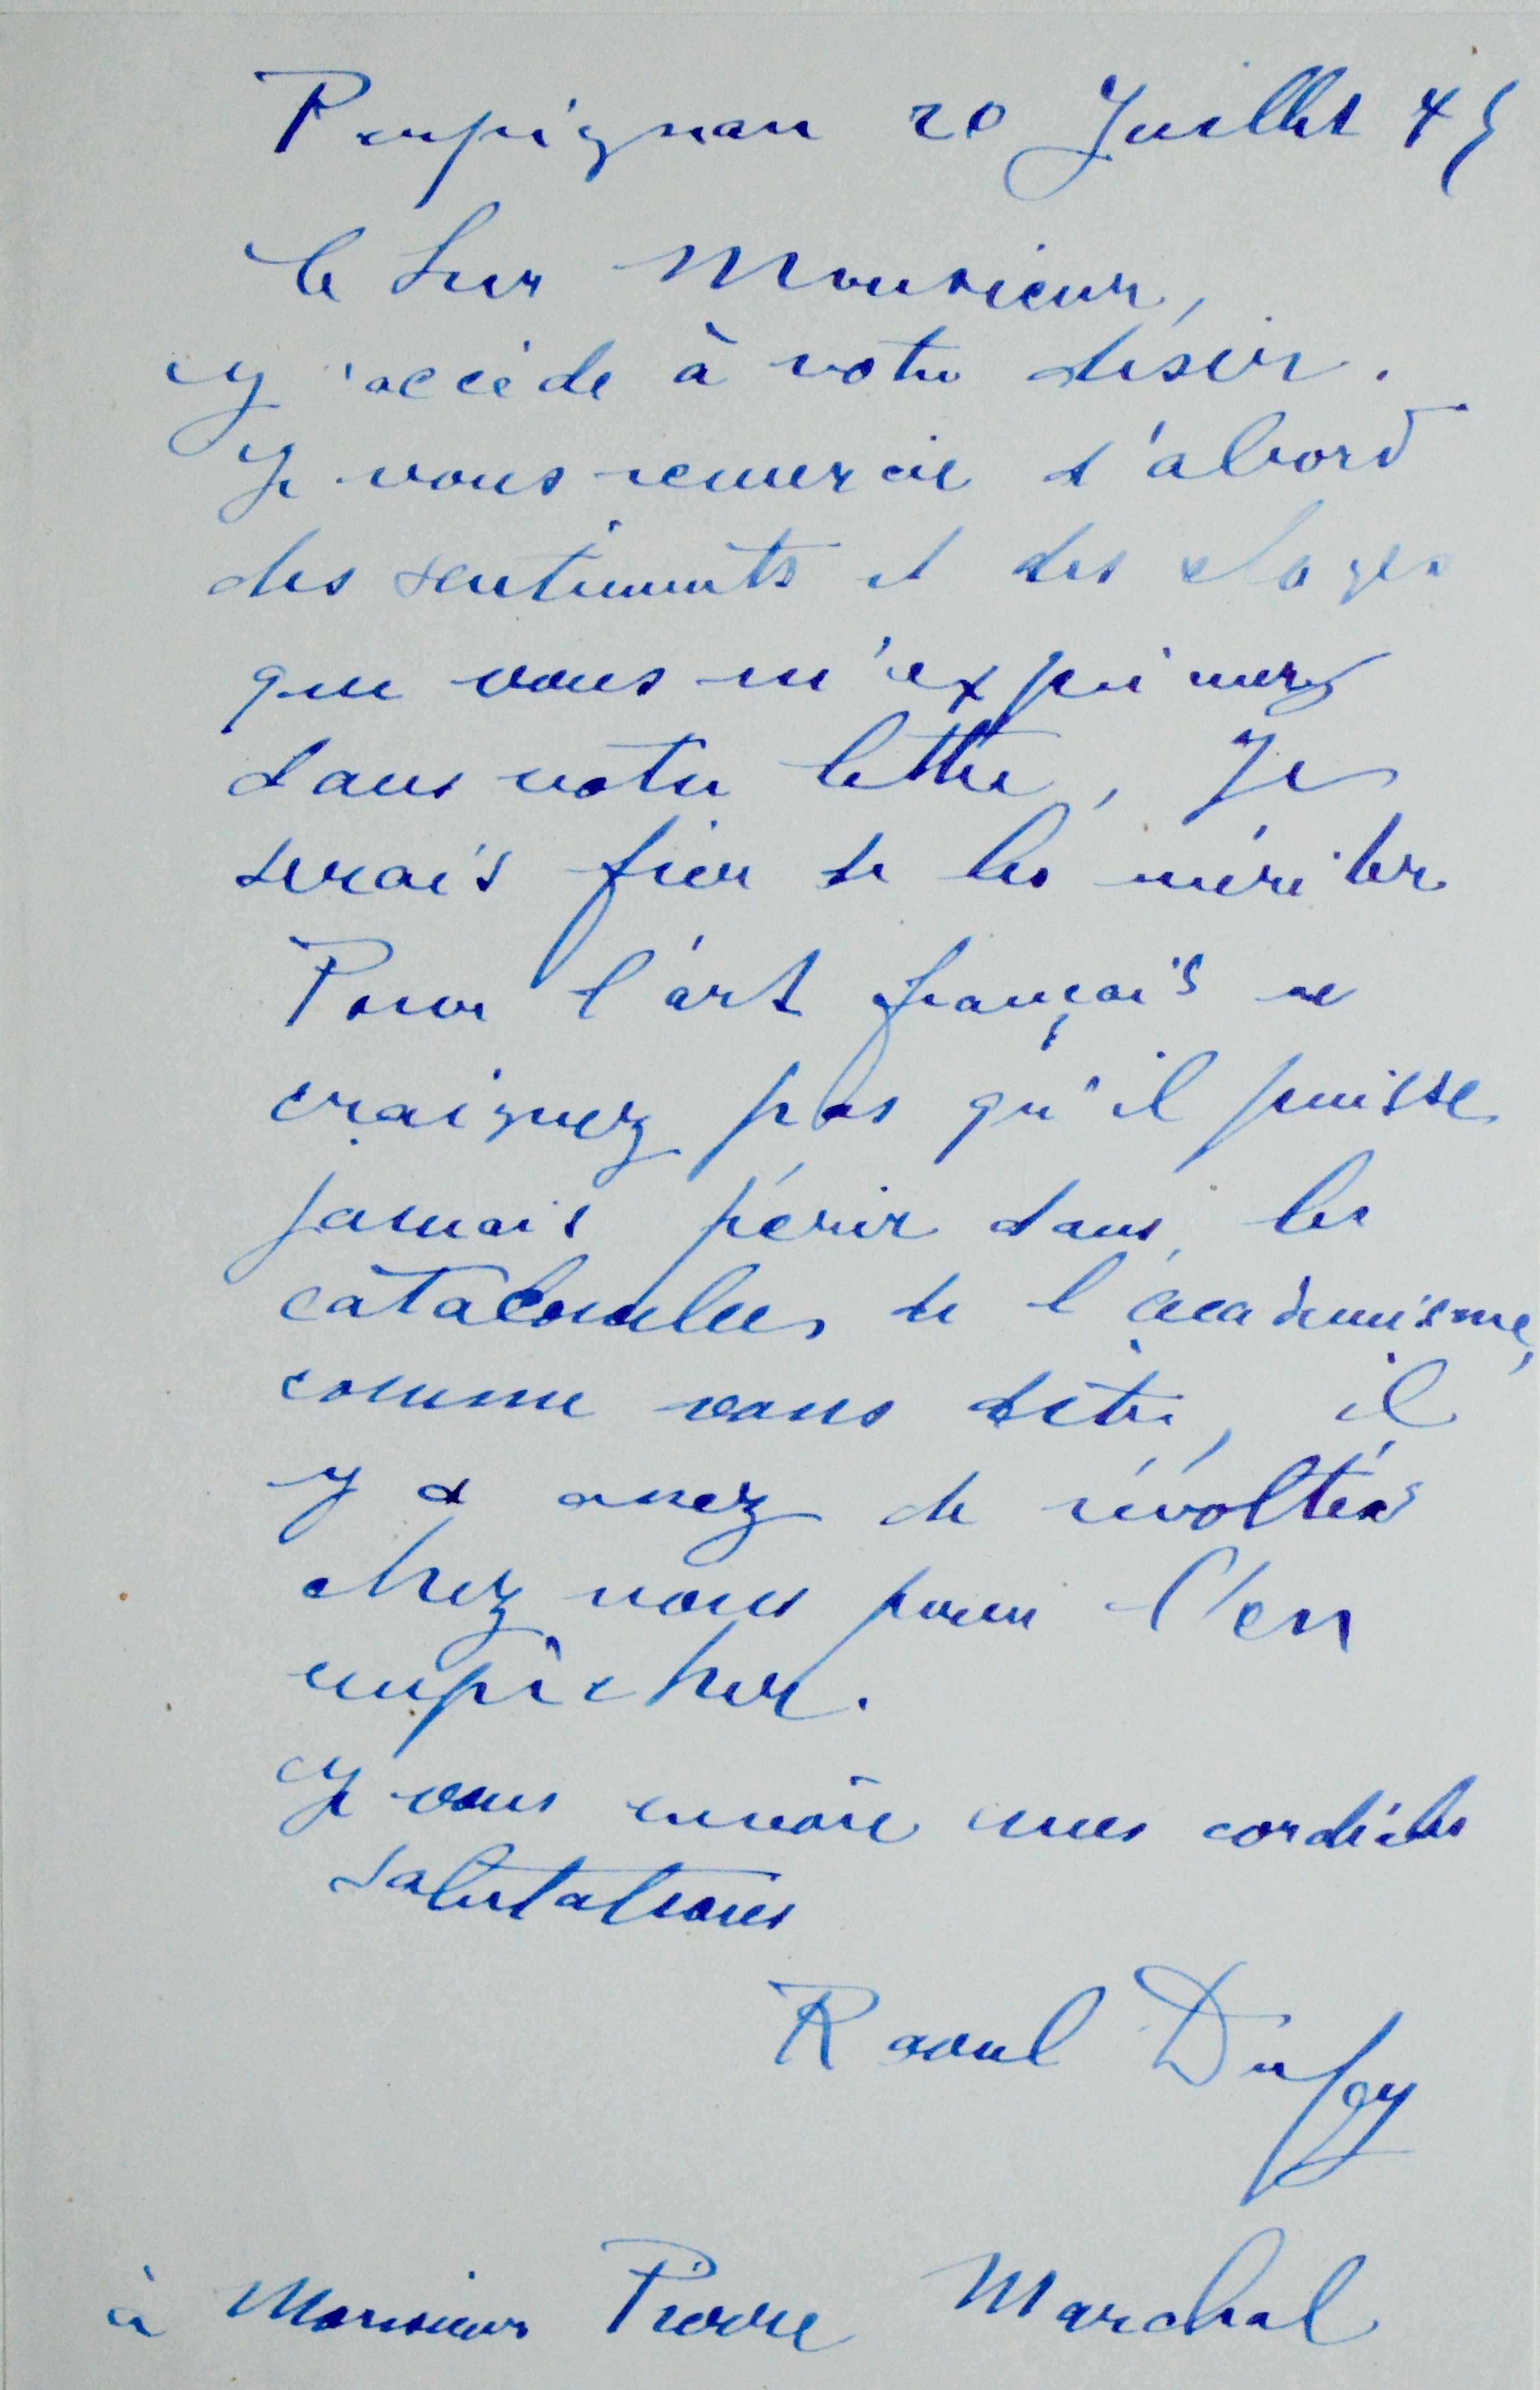 Perpignan 20 Juillet 45
Cher Monsieur,
J'accède à votre désir.
Je vous remercie d'abord
des sentiments et des éloges
que vous m'exprimez
dans votre lettre, Je
serais fier de les mériter
Pour l'art français ne
craignez pas qu'il puisse
jamais périr dans les
catacombes de l'académisme,
comme vous dites, il
y a assez de révoltés
chez nous pour l'en
empêcher.
Je vous envoie mes cordiales
salutations
Raoul Dufy
à Monsieur Pierre Marchal